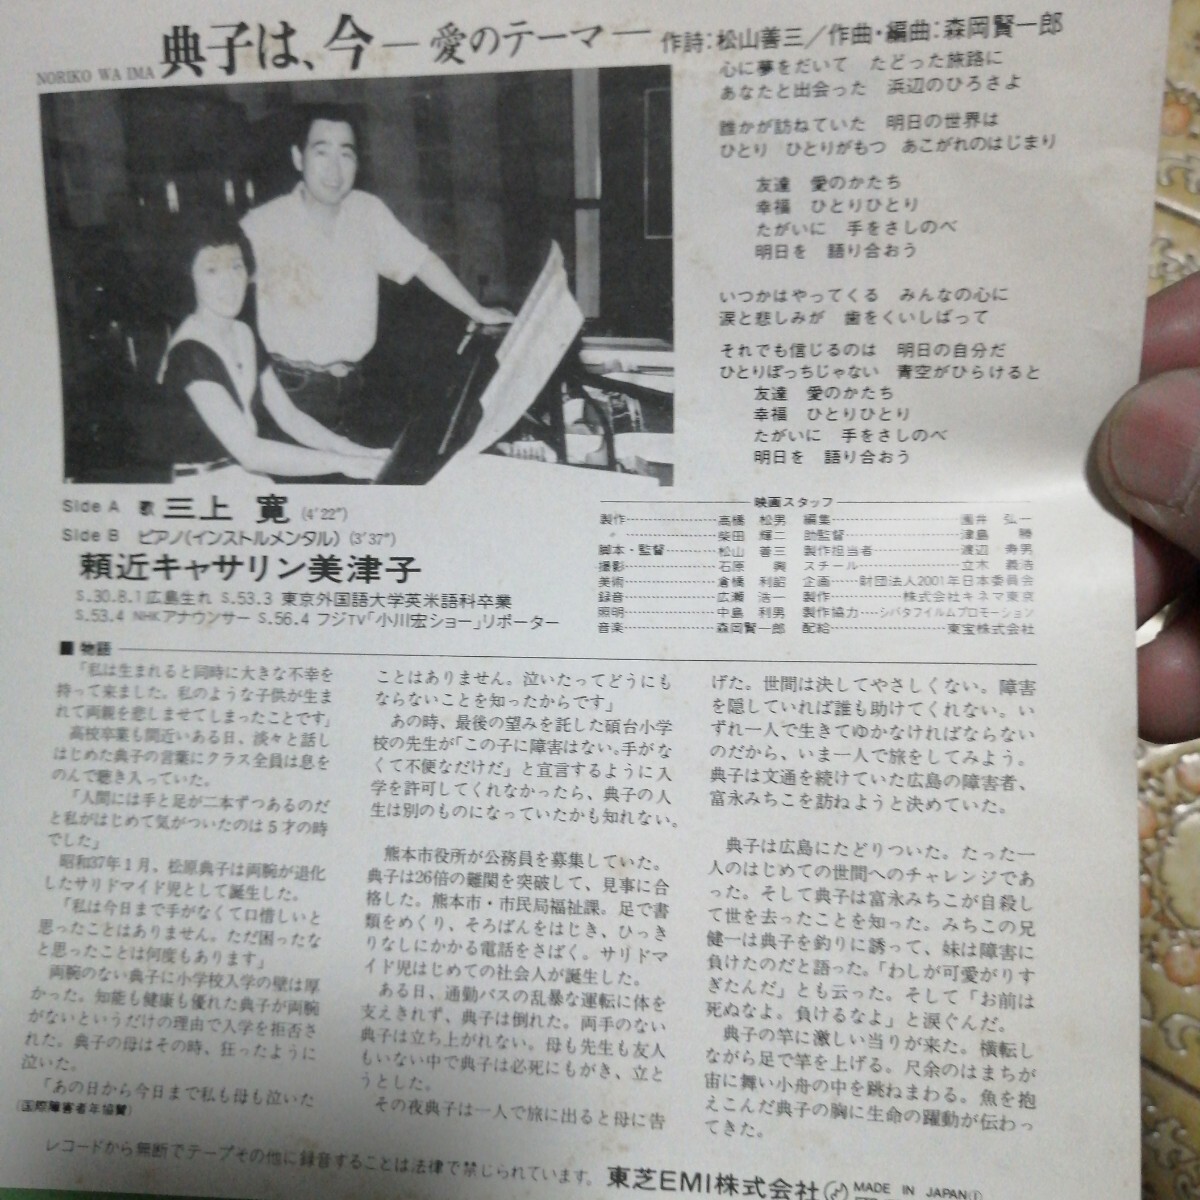 典子は、今 ―愛のテーマ― 作詩:松山善三/作曲・編曲:森岡賢一郎
NORIKO WA IMA
心に夢をだいて たどった旅路に
あなたと出会った 浜辺のひろさよ
誰かが訪ねていた 明日の世界は
ひとり ひとりがもつ あこがれのはじまり
友達 愛のかたち
幸福 ひとりひとり
たがいに 手をさしのべ
明日を 語り合おう
いつかはやってくる みんなの心に
涙と悲しみが 歯をくいしばって
それでも信じるのは 明日の自分だ
ひとりぼっちじゃない 青空がひらけると
友達 愛のかたち
幸福 ひとりひとり
たがいに 手をさしのべ
明日を 語り合おう
Side A 歌 三上 寛 (4'22")
Side B ピアノ(インストルメンタル) (3'37")
頼近キャサリン美津子
S.30.8.1広島生れ S.53.3 東京外国語大学英米語科卒業
S.53.4 NHKアナウンサー S.56.4 フジTV「小川宏ショー」リポーター
映画スタッフ
製作……………高橋 松男
〃……………柴田 輝二
脚本・監督………松山 善三
撮影……………石原 興
美術……………倉橋 利韶
録音……………広瀬 浩一
照明……………中島 利男
音楽……………森岡賢一郎
編集……………園井 弘一
助監督……………津島 勝
製作担当者………渡辺 寿男
スチール…………立木 義浩
企画……財団法人2001年日本委員会
製作……………株式会社キネマ東京
製作協力……シバタフイルムプロモーション
配給……………東宝株式会社
■ 物語
「私は生まれると同時に大きな不幸を
持って来ました。私のような子供が生ま
れて両親を悲しませてしまったことです」
高校卒業も間近いある日、淡々と話し
はじめた典子の言葉にクラス全員は息を
のんで聴き入っていた。
「人間には手と足が二本ずつあるのだ
と私がはじめて気がついたのは5才の時
でした」
昭和37年1月、松原典子は両腕が退化
したサリドマイド児として誕生した。
「私は今日まで手がなくて口惜しいと
思ったことはありません。ただ困ったな
と思ったことは何度もあります」
両腕のない典子に小学校入学の壁は厚
かった。知能も健康も優れた典子が両腕
がないというだけの理由で入学を拒否さ
れた。典子の母はその時、狂ったように
泣いた。
「あの日から今日まで私も母も泣いた
(国際障害者年協賛)
ことはありません。泣いたってどうにも
ならないことを知ったからです」
あの時、最後の望みを託した碩台小学
校の先生が「この子に障害はない。手がな
くて不便なだけだ」と宣言するように入
学を許可してくれなかったら、典子の人
生は別のものになっていたかも知れない。
熊本市役所が公務員を募集していた。
典子は26倍の難関を突破して、見事に合
格した。熊本市・市民局福祉課。足で書
類をめくり、そろばんをはじき、ひっき
りなしにかかる電話をさばく。サリドマ
イド児はじめての社会人が誕生した。
ある日、通勤バスの乱暴な運転に体を
支えきれず、典子は倒れた。両手のない
典子は立ち上がれない。母も先生も友人
もいない中で典子は必死にもがき、立と
うとした。
その夜典子は一人で旅に出ると母に告
げた。世間は決してやさしくない。障害
を隠していれば誰も助けてくれない。い
ずれ一人で生きてゆかなければならない
のだから、いま一人で旅をしてみよう。
典子は文通を続けていた広島の障害者、
富永みちこを訪ねようと決めていた。
典子は広島にたどりついた。たった一
人のはじめての世間へのチャレンジであ
った。そして典子は富永みちこが自殺し
て世を去ったことを知った。みちこの兄
健一は典子を釣りに誘って、妹は障害に
負けたのだと語った。「わしが可愛がりす
ぎたんだ」とも云った。そして「お前は
死ぬなよ。負けるなよ」と涙ぐんだ。
典子の竿に激しい当りが来た。横転し
ながら足で竿を上げる。尺余のはまちが
宙に舞い小舟の中を跳ねまわる。魚を抱
えこんだ典子の胸に生命の躍動が伝わっ
てきた。
レコードから無断でテープその他に録音することは法律で禁じられています。 東芝EMI株式会社 MADE IN JAPAN